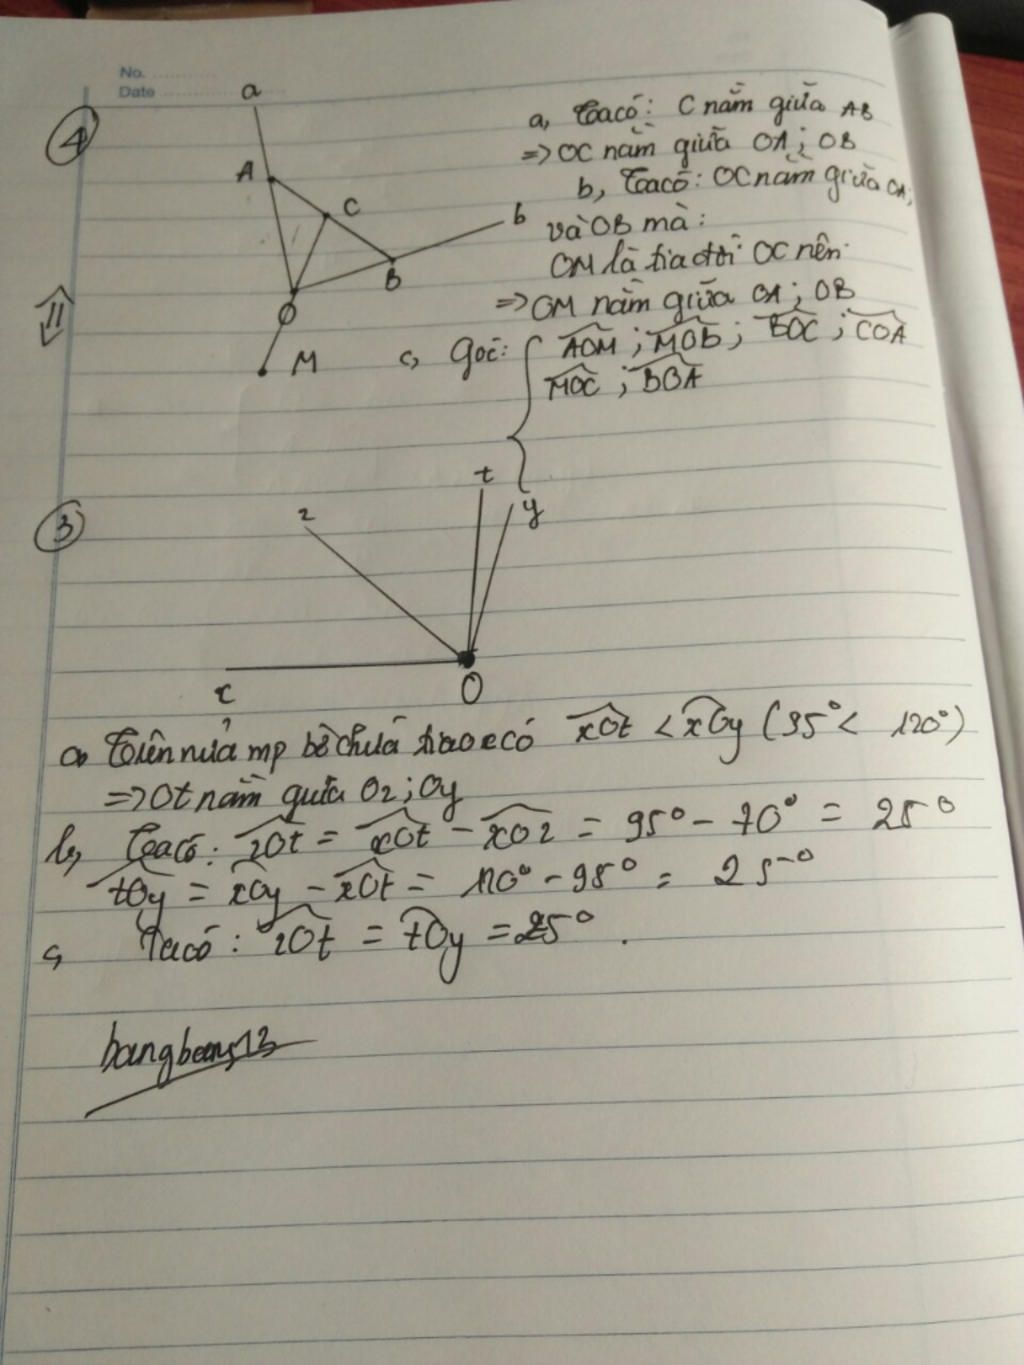 No.
Date
4
a
A
C
b
B
O
M
a, Ta có: C nằm giữa AB
=> OC nằm giữa OA; OB
b, Ta có: OC nằm giữa OA;
và OB mà:
OM là tia đối OC nên
=> OM nằm giữa OA; OB
c, Góc: { AOM; MOB; BOC; COA
MOC; BOA
3
z
t
y
x
O
a, Trên nửa mp bờ chứa tia Ox có xOt < xOy (95° < 120°)
=> Ot nằm giữa Oz; Oy
b, Ta có: zOt = xOt - xOz = 95° - 70° = 25°
tOy = xOy - xOt = 120° - 95° = 25°
c, Ta có: zOt = tOy = 25°.
bangbang13